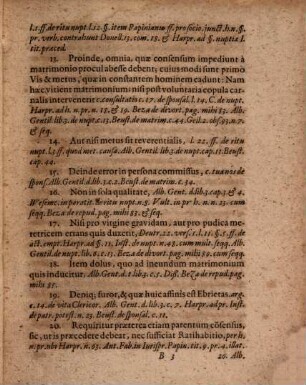 l.1.ff. de ritu nupt. l.12. §. item Papinianum ff. pro socio. junct. h. n. §.
pr. verb. contrahunt Donell. 13. com. 18. & Harpr. ad §. nuptiæ l.
tit. præced.
13. Proinde, omnia, quæ consensum impediunt à
matrimonio procul abesse debent; cuius modi sunt primo
Vis & metus, quæ in constantem hominem cadunt: Nam
hæc vitient matrimonium: nisi post voluntaria copula car-
nalis intervenerit
Harpr. ad h. n. pr. n. 15. & 19. Beza de divort. pag. mihi 85. Alb.
Gentil lib. 3. de nupt. c. 10. Beust. de matrim. c. 44. Geil. 2. obs. 93. n. 7.
& 10.
14. Aut nisi metus sit reverentialis, l. 22. ff. de ritu
nupt. l. 2. ff. quod met. causa. Alb. Gentil. lib. 3. de nupt. cap. 11. Beust.
cap. 44.
15. Deinde error in persona commissus,
sponsf. Alb. Gentil. d. lib. 3. c. 2. Beust. de matrim. c. 34.
16. Non in sola qualitate, Alb. Gent. d. lib. 3. cap. 3. & 4.
Wesemc. in paratit. de ritu nupt. n. 5. Vult. in pr. h. n. n. 23. cum
seqq. Beza de repud. pag. mihi 85. & seqq.
17. Nisi pro virgine gravidam, aut pro pudica me-
retricem etiam quis duxerit; Deutr. 22. vers. 13. 21.
act. empt. Harpr. ad §. 12. Inst. de nupt. n. 43. cum mult. seqq. Alb.
Gentil. de nupt. lib. 6. c. 11. Beza de divort. pag. mihi 88. cum seqq.
18. Item dolus, quo ad ineundum matrimonium
quis inducitur. Alb. Gent. d. t. lib. 3. c. 5. Diss. Beza de repud. pag.
mihi 85.
19. Deniq; furor, & quæ huic affinis est Ebrietas: arg.
c. 14. de vita Clericor. Alb. Gent. d. lib. 3. c. 7. Harpr. ad pr. Inst.
de patr. potest. n. 25. Beust. de sponsal. c. 11.
20. Requiritur præterea etiam parentum cõsensus,
sic, ut is præcedere debeat, nec sufficiat Ratihabitio, per h.
n. pr. ubi Harpr. n. 63. Ant. Fab. in Iurispr. Papin. tit. 9. pr. 4. illat.
B 3
20. Alb.